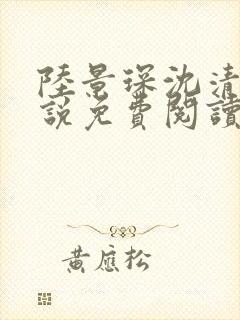 陸景琛沈清
說免費閱讀
黃應松